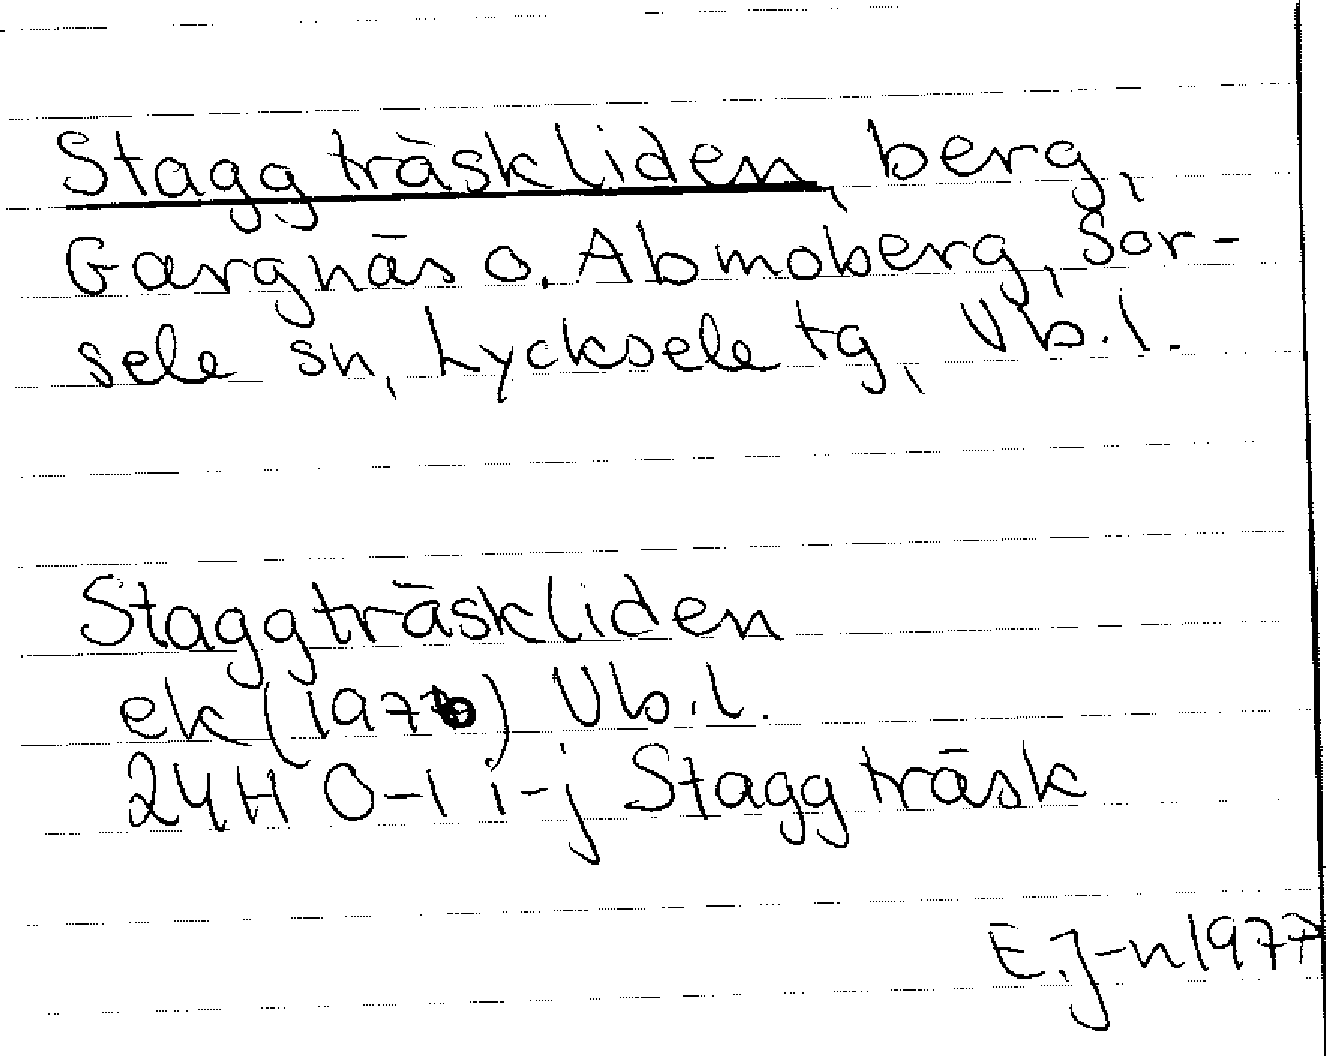 Staggträskliden, berg,
Gargnäs o. Abmoberg, Sor-
sele sn, Lycksele tg, Vb.l.
Staggträskliden
ek (1970) Vb.l.
24H 0-1 i-j Staggträsk
E.J-n 1977